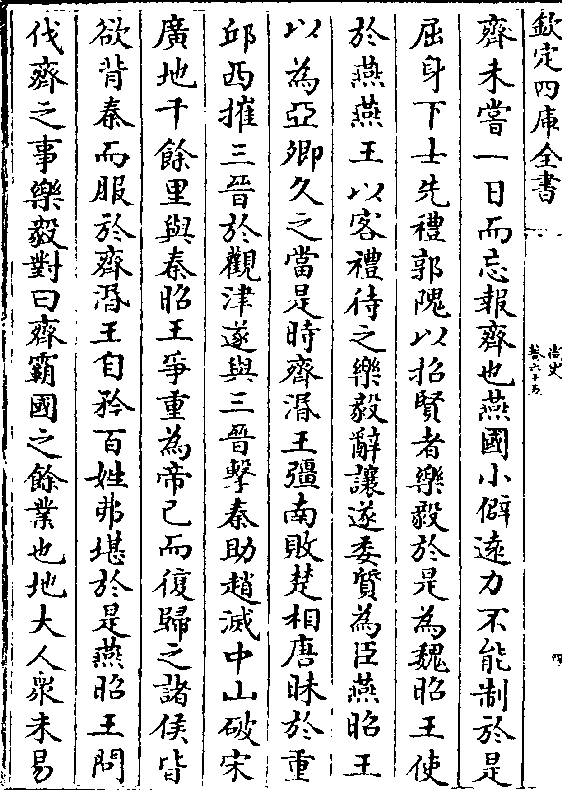 欽定四庫全書
尚史
卷六十五
四
齊未嘗一日而忘報齊也燕國小僻遠力不能制於是
屈身下士先禮郭隗以招賢者樂毅於是為魏昭王使
於燕燕王以客禮待之樂毅辭讓遂委質為臣燕昭王
以為亞卿久之當是時齊湣王彊南敗楚相唐昧於重
邱西摧三晉於觀津遂與三晉擊秦助趙滅中山破宋
廣地千餘里與秦昭王爭重為帝已而復歸之諸侯皆
欲背秦而服於齊湣王自矜百姓弗堪於是燕昭王問
伐齊之事樂毅對曰齊霸國之餘業也地大人衆未易